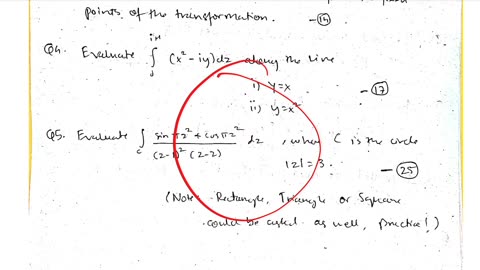 points of the transformation. —(14)
Q4. Evaluate ∫ (x² - iy) dz along the line
i) y=x —(17)
ii) y=x²
Q5. Evaluate ∫c (sin πz² + cos πz²) / ((z-1)² (z-2)) dz , where C is the circle
|z| = 3. —(25)
(Note: Rectangle, Triangle or Square
could be asked as well, practice!)